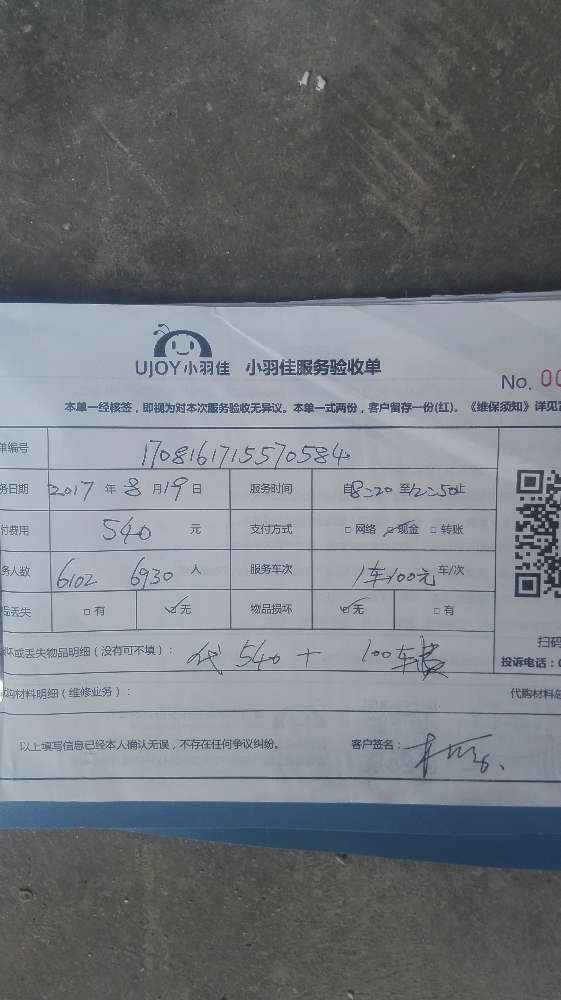 UJOY小羽佳 小羽佳服务验收单
No. 00
本单一经核签，即视为对本次服务验收无异议。本单一式两份，客户留存一份(红)。《维保须知》详见
单编号 1708161715570584
务日期 2017 年 8 月 19 日 服务时间 自8:20 至12:50止
付费用 540 元 支付方式 □ 网络 ☑ 现金 □ 转账
务人数 6102 6930 人 服务车次 1车100元 车/次
品丢失 □ 有 ☑ 无 物品损坏 ☑ 无 □ 有
坏或丢失物品明细（没有可不填）： 代 540 + 100车费
扫码
投诉电话：0
购材料明细（维修业务）： 代购材料总
以上填写信息已经本人确认无误，不存在任何争议纠纷。 客户签名：